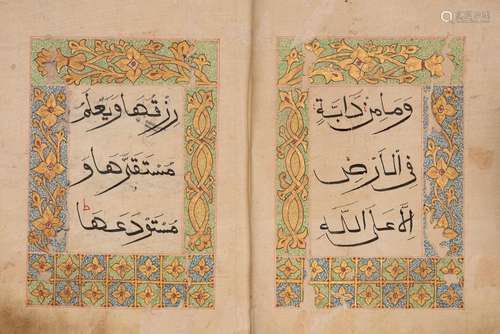 وما من دابة
فى الارض
الا على الله
رزقها ويعلم
مستقرها و
مستودعها ط